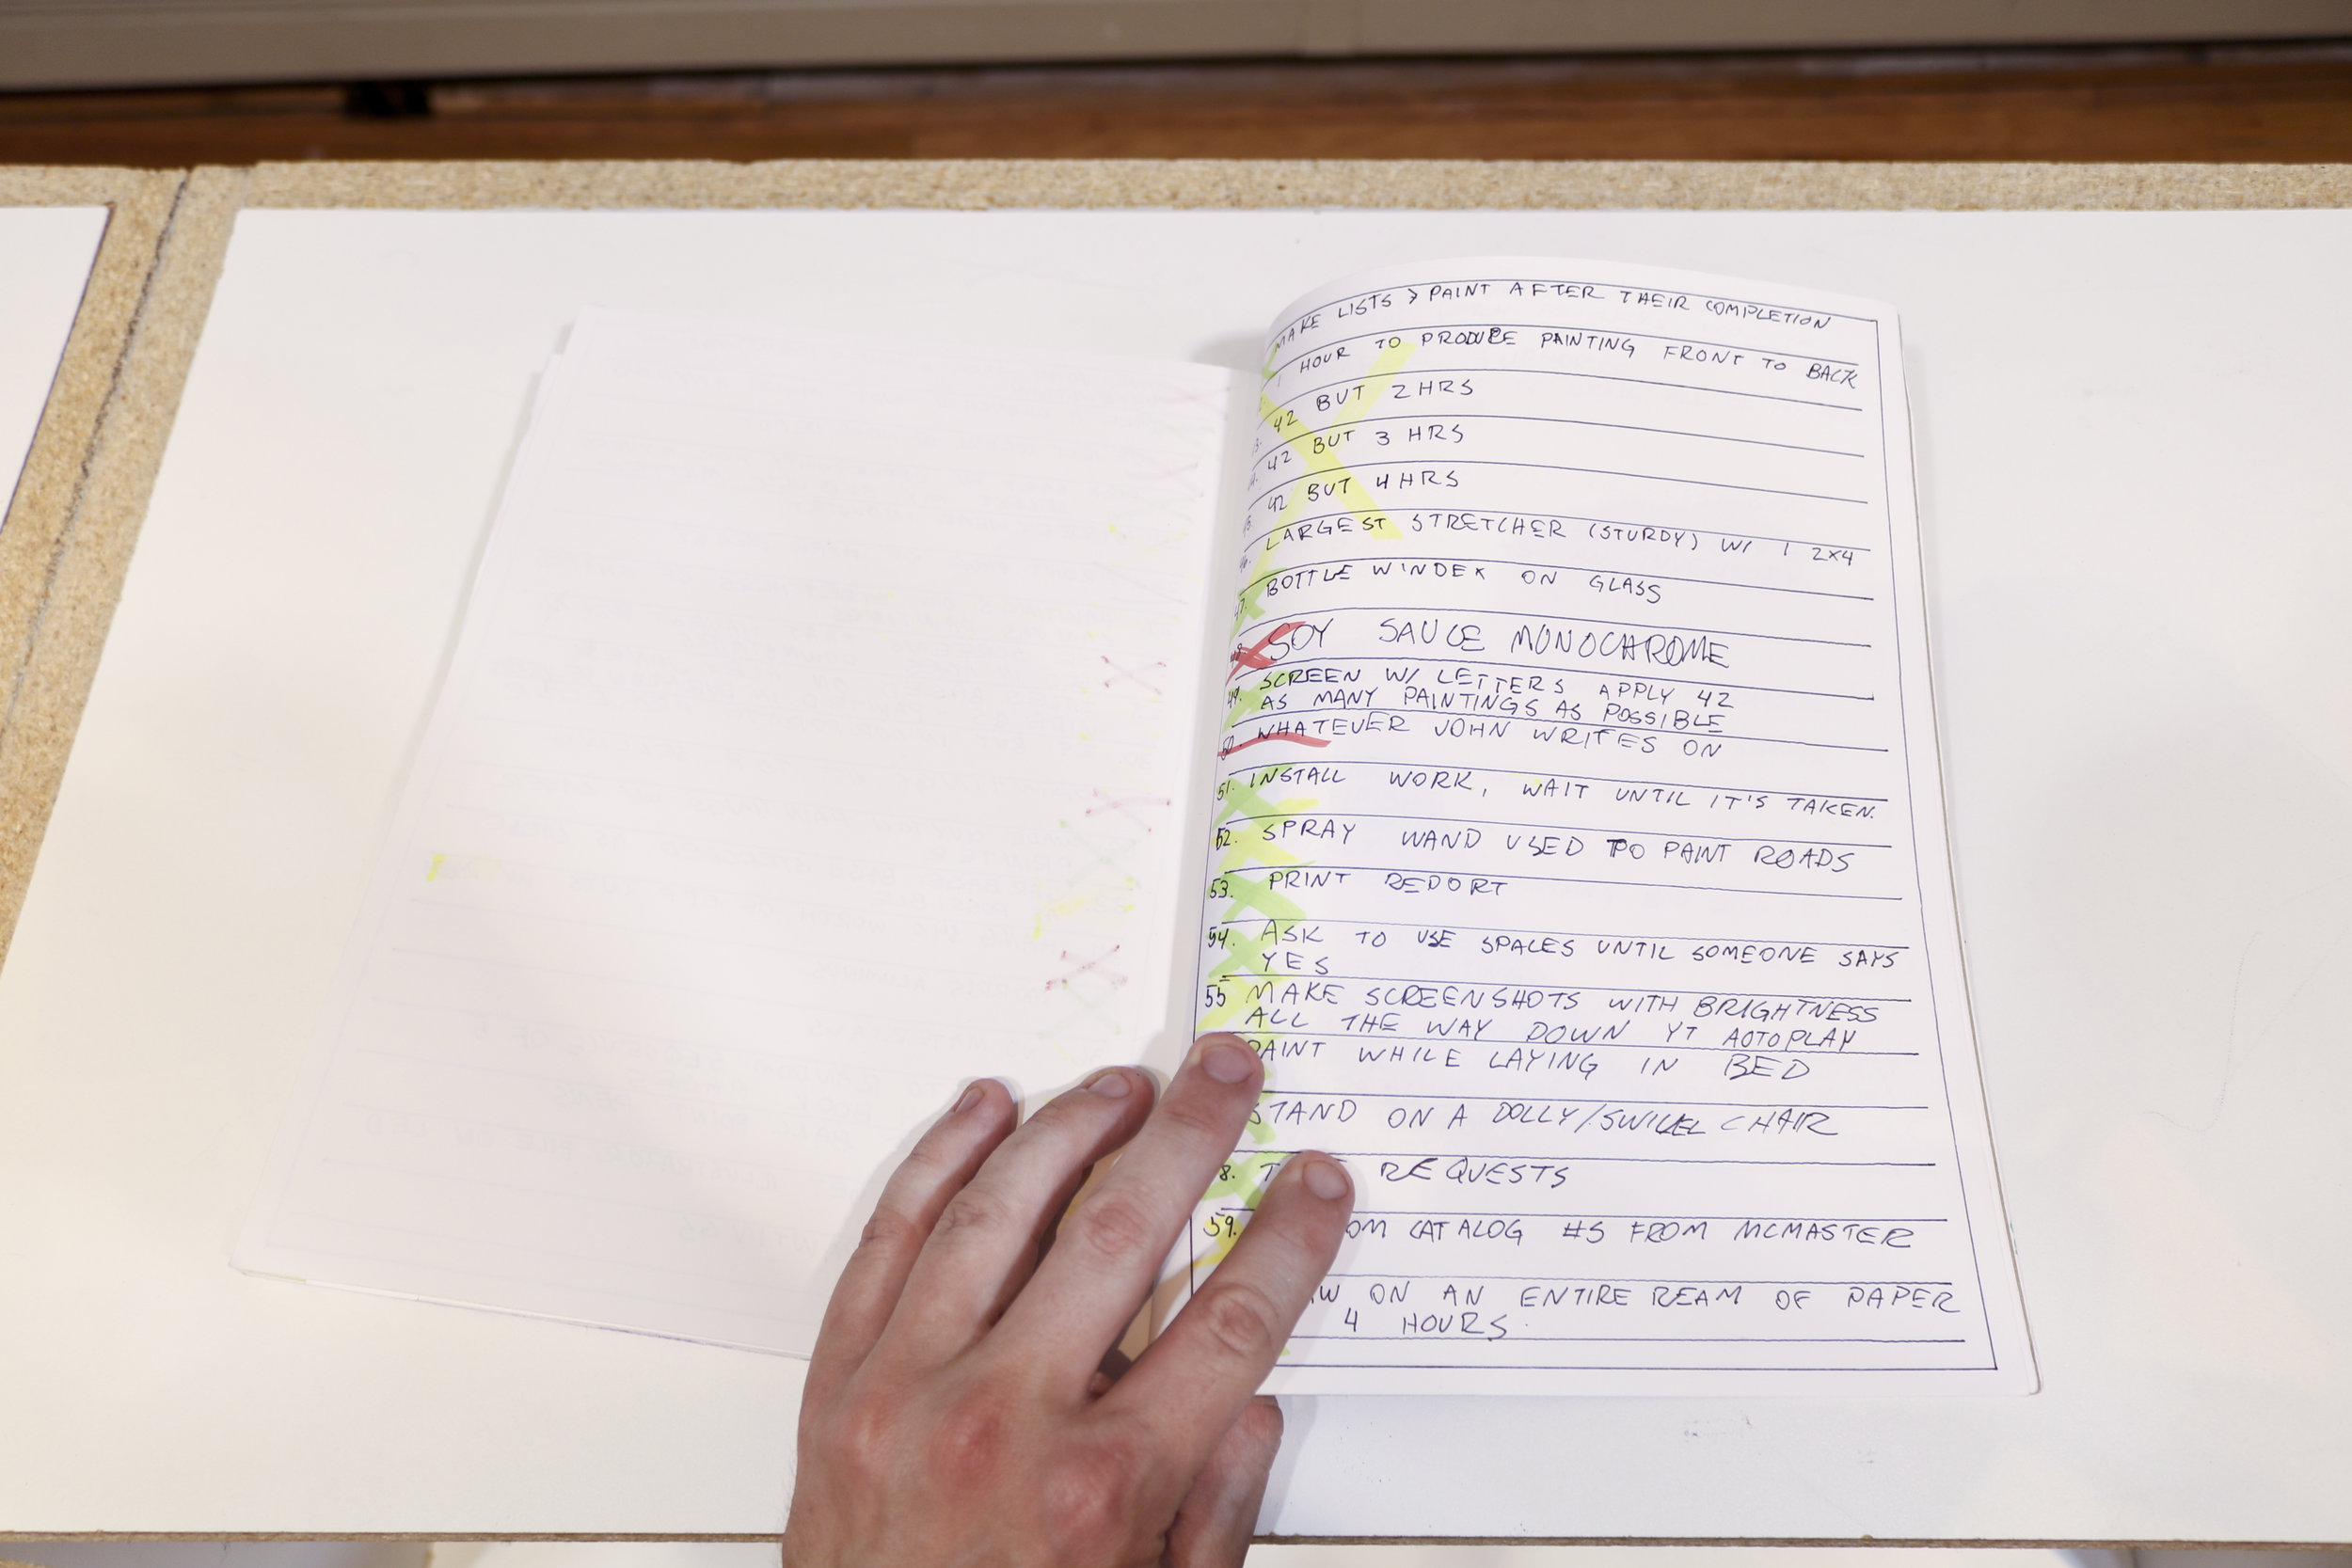 MAKE LISTS > PAINT AFTER THEIR COMPLETION
1 HOUR TO PRODUCE PAINTING FRONT TO BACK
42 BUT 2 HRS
42 BUT 3 HRS
42 BUT 4 HRS
LARGEST STRETCHER (STURDY) W/ 1 2x4
47. BOTTLE WINDEX ON GLASS
48. SOY SAUCE MONOCHROME
49. SCREEN W/ LETTERS APPLY 42
AS MANY PAINTINGS AS POSSIBLE
50. WHATEVER JOHN WRITES ON
51. INSTALL WORK, WAIT UNTIL IT'S TAKEN.
52. SPRAY WAND USED TO PAINT ROADS
53. PRINT REPORT
54. ASK TO USE SPACES UNTIL SOMEONE SAYS
YES
55 MAKE SCREENSHOTS WITH BRIGHTNESS
ALL THE WAY DOWN YT AUTOPLAY
PAINT WHILE LAYING IN BED
STAND ON A DOLLY/SWIVEL CHAIR
8. REQUESTS
59. CATALOG #S FROM MCMASTER
ON AN ENTIRE REAM OF PAPER
4 HOURS.